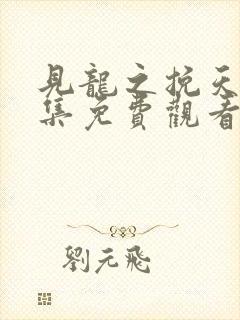 見龍之挽天
集免費觀看
劉元飛